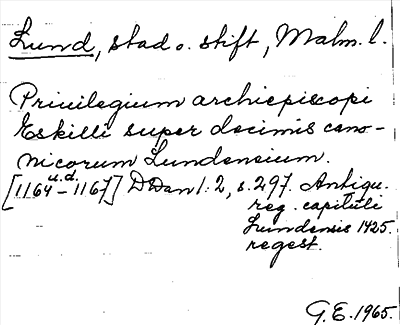 Lund, stad o. stift, Malm. l.
Privilegium archiepiscopi
Eskilli super decimis cano-
nicorum Lundensium.
u.d.
[1164 – 1167] DDan 1:2, s. 297. Antiqu.
reg. capituli
Lundensis 1425.
regest.
G.E. 1965.